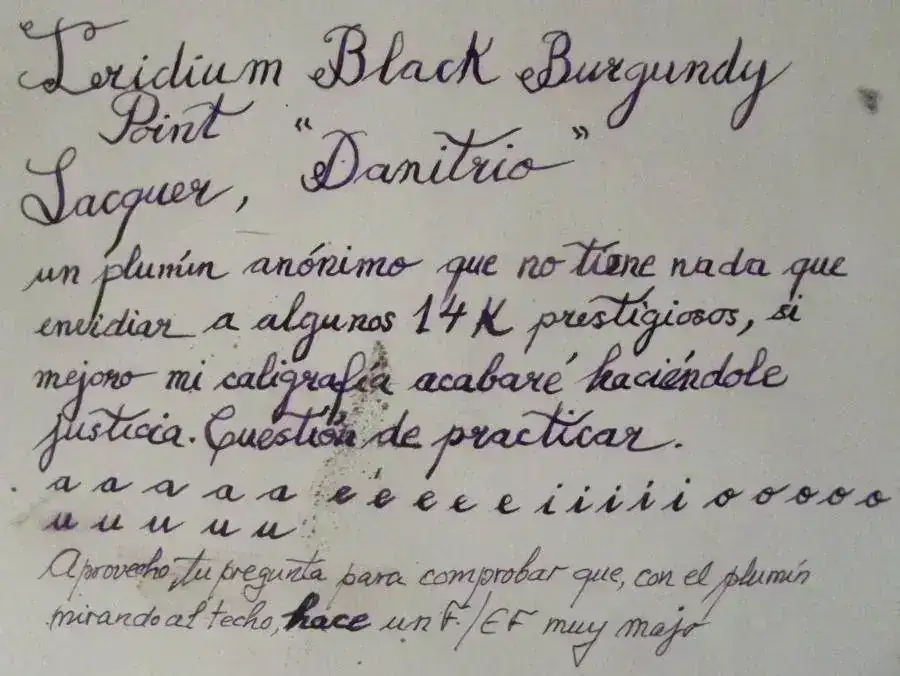 Iridium Black Burgundy
Point
Lacquer, "Danitrio"
un plumín anónimo que no tiene nada que
envidiar a algunos 14K prestigiosos, si
mejoro mi caligrafía acabaré haciéndole
justicia. Cuestión de practicar.
a a a a a e e e e e i i i i i o o o o o
u u u u u
Aprovecho, tu pregunta para comprobar que, con el plumín
mirando al techo, hace un F/EF muy majo